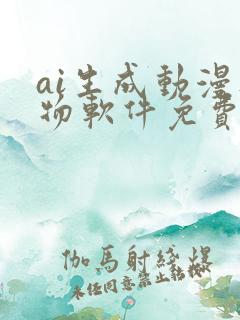 ai生成動漫
物軟件免費
伽馬射綫爆
未任同意禁止轉載